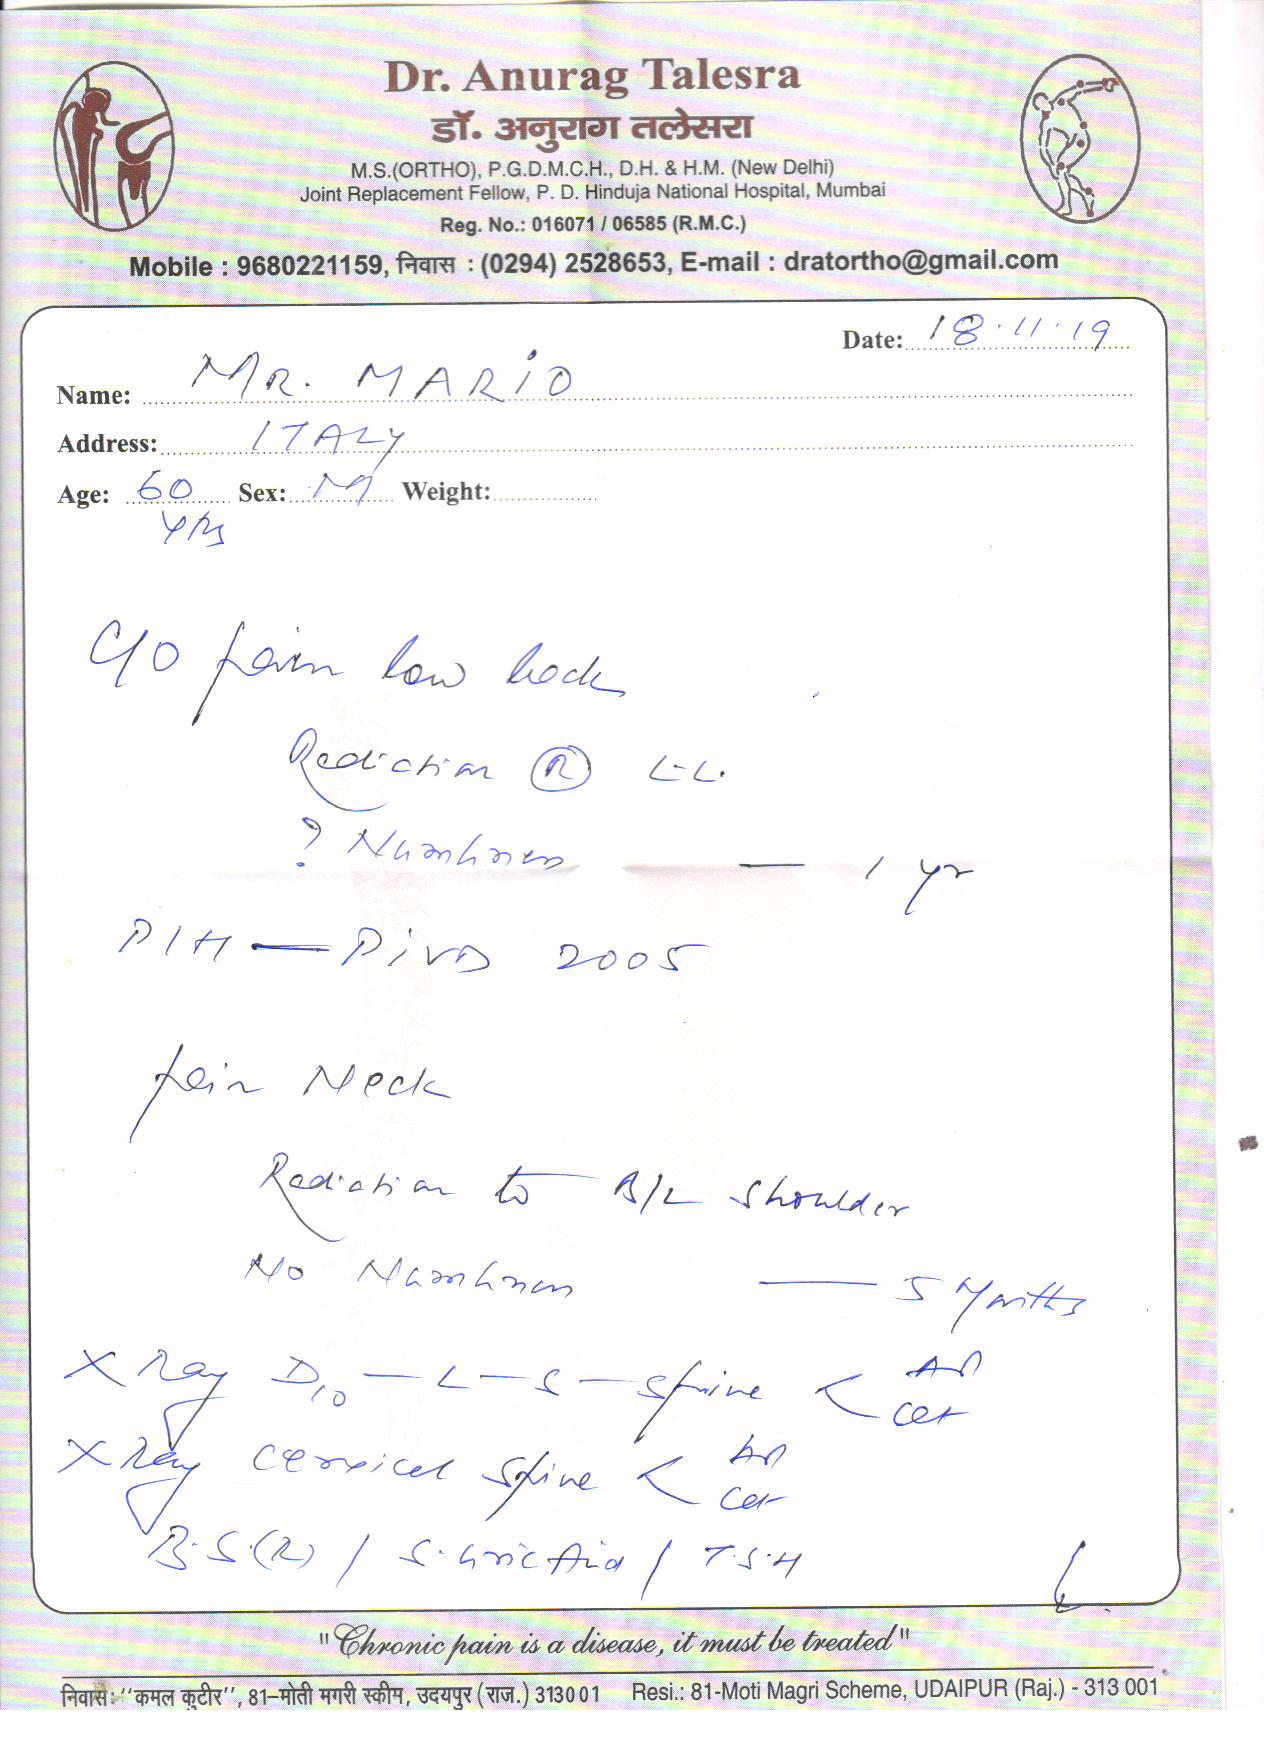 Dr. Anurag Talesra
डॉ. अनुराग तलेसरा
M.S.(ORTHO), P.G.D.M.C.H., D.H. & H.M. (New Delhi)
Joint Replacement Fellow, P. D. Hinduja National Hospital, Mumbai
Reg. No.: 016071 / 06585 (R.M.C.)
Mobile : 9680221159, निवास : (0294) 2528653, E-mail : dratortho@gmail.com
Date: 18.11.19
Name: MR. MARIO
Address: ITALY
Age: 60 Sex: M Weight:
yrs
C/O pain low back
Radiation Ⓡ L.L.
? Numbness — 1 yr
P/H — PIVD 2005
pain Neck
Radiation to B/L shoulder
No Numbness — 5 Months
X Ray D10 — L — S — spine < AP
Lat
X Ray cervical spine < AP
Lat
B.S.(R) / S. Uric Acid / T.S.H
"Chronic pain is a disease, it must be treated"
निवास: "कमल कुटीर", 81–मोती मगरी स्कीम, उदयपुर (राज.) 313001 Resi.: 81-Moti Magri Scheme, UDAIPUR (Raj.) - 313 001